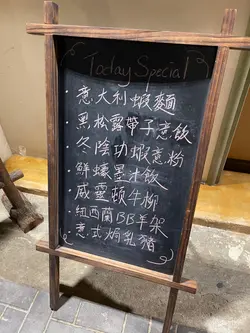 Today Special
· 意大利蝦麵
· 黑松露帶子意飯
· 冬陰功蝦意粉
· 鮮蠔墨汁飯
· 威靈頓牛柳
· 紐西蘭BB羊架
· 意式焗乳豬